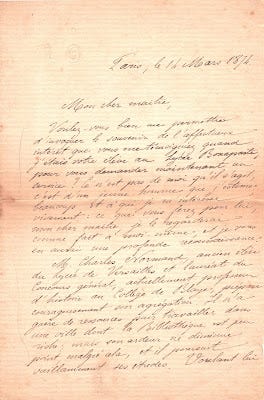 Paris, le 14 Mars 1874.
Mon cher maître,
Voulez-vous bien me permettre
d'invoquer le souvenir de l'affectueux
intérêt que vous me témoigniez quand
j'étais votre élève au Lycée Bonaparte,
pour vous demander maintenant un
service? Ce n'est pas de moi qu'il s'agit,
c'est d'un jeune homme que j'estime
beaucoup et à qui je m'intéresse
vivement: ce que vous ferez pour lui,
mon cher maître, je le regarderai
comme fait à moi-même, et je vous
en aurai une profonde reconnaissance.
M. Charles Normand, ancien élève
du lycée de Versailles et lauréat du
Concours général, actuellement professeur
d'histoire au Collège de Blaye, prépare
courageusement son agrégation. Il n'a
guère de ressources pour travailler dans
une ville dont la Bibliothèque est peu
riche; mais son ardeur ne diminue
point malgré cela, et il poursuit
vaillamment ses études. Voulant lui